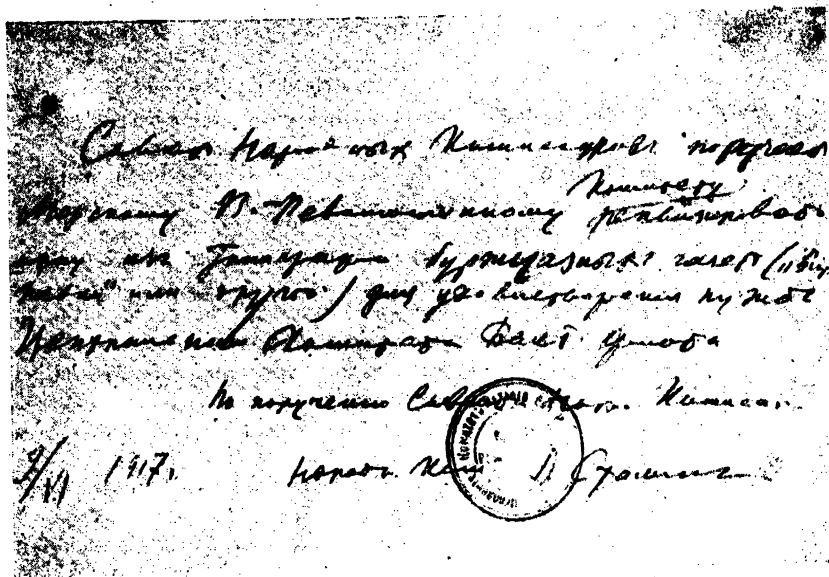 Совет Народных Комиссаров поручает
Морскому В.-Революционному Комитету реквизировать
одну из Типографий буржуазных газет („
или другую) для удовлетворения нужд
Центрального Комитета Балт. флота
По поручению Совета Нар. Комисс.
1917г. Народн. Ком И Сталин